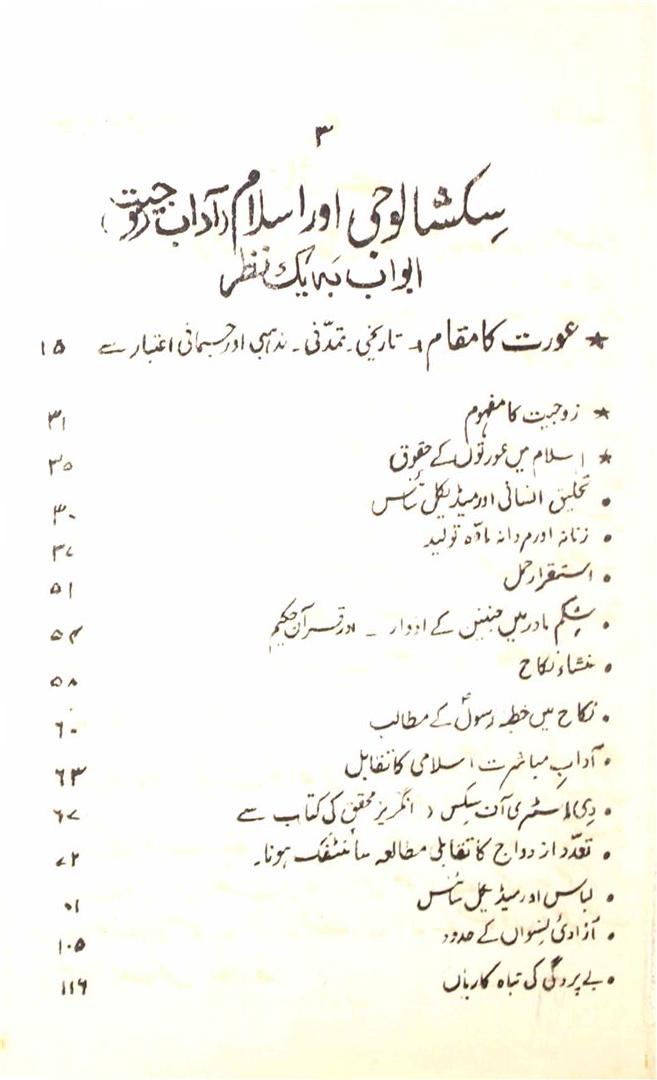 ۳
سکشالوجی اور اسلام (آداب زوجیت)
ابواب بہ یک نظر
★ عورت کا مقام ۔ تاریخی ۔ تمدّنی ۔ مذہبی اور جسمانی اعتبار سے ۱۵
★ زوجیت کا مفہوم ۳۱
★ اسلام میں عورتوں کے حقوق ۳۵
• تخلیق انسانی اور میڈیکل سائنس ۴۰
• زنانہ اور مردانہ مادّہ تولید ۴۷
• استقرار حمل ۵۱
• شکم مادر میں جنین کے ادوار ۔ اور قرآن حکیم ۵۴
• منشاء نکاح ۵۸
• نکاح میں خطبہ رسولؐ کے مطالب ۶۰
• آدابِ مباشرت اسلامی کا تقابل ۶۳
• دی ہسٹری آف سکس (انگریز محقق کی کتاب سے ۶۷
• تعدّد ازدواج کا تقابلی مطالعہ سائنٹفک ہونا۔ ۷۲
• لباس اور میڈیکل سائنس
• آزادیٔ نسواں کے حدود ۱۰۵
• بے پردگی کی تباہ کاریاں ۱۱۶